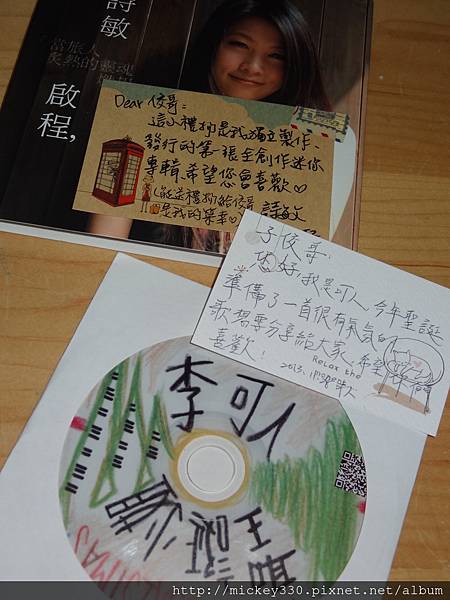 詩敏
當旅人
啟程,
Dear 佼哥:
這小禮物是我獨立製作、
發行的第一張全創作迷你
專輯、希望您會喜歡♡
(能送禮物給佼哥
是我的榮幸♡)
詩敏
子佼哥:
您好,我是可人,今年聖誕
準備了一首很有氣氛的
歌想要分享給大家,希望你們
喜歡!
Relax the
2013.
李可人
聖誕
http://mickey330.pixnet.net/album